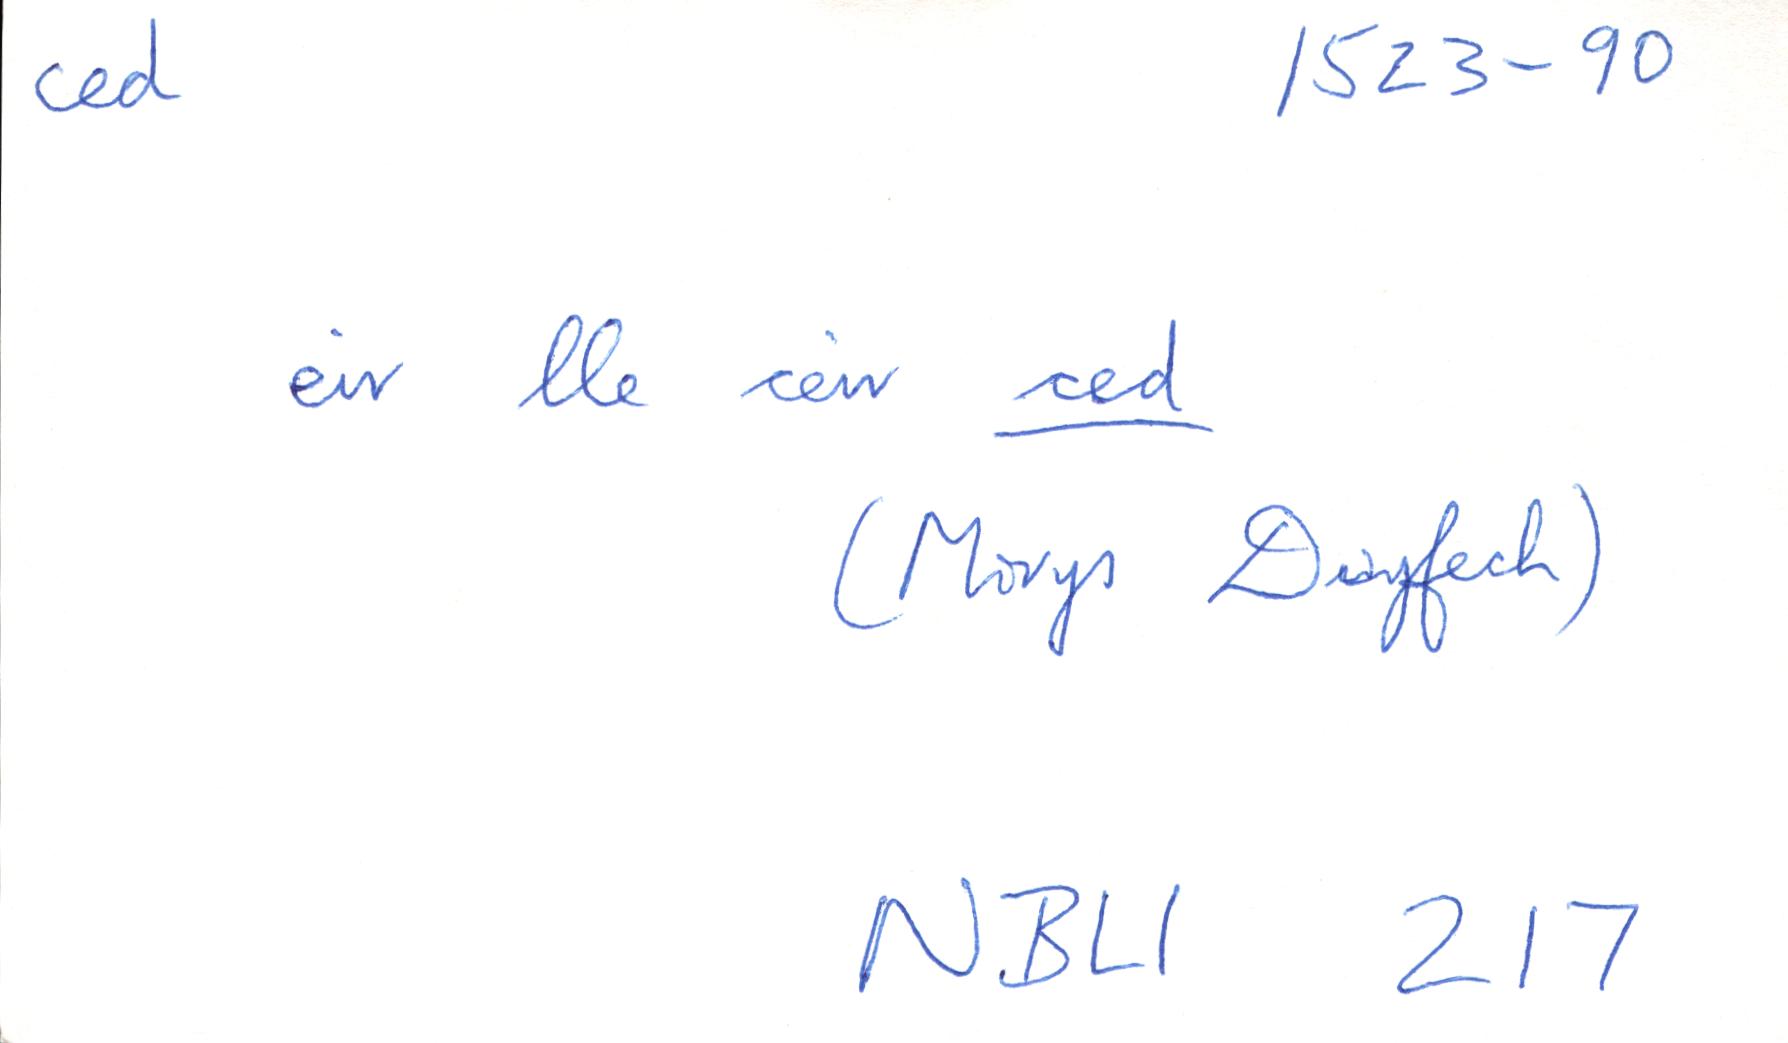 ced 1523-90
eiv lle ceiv ced
(Morys Dwyfech)
NBLl 217